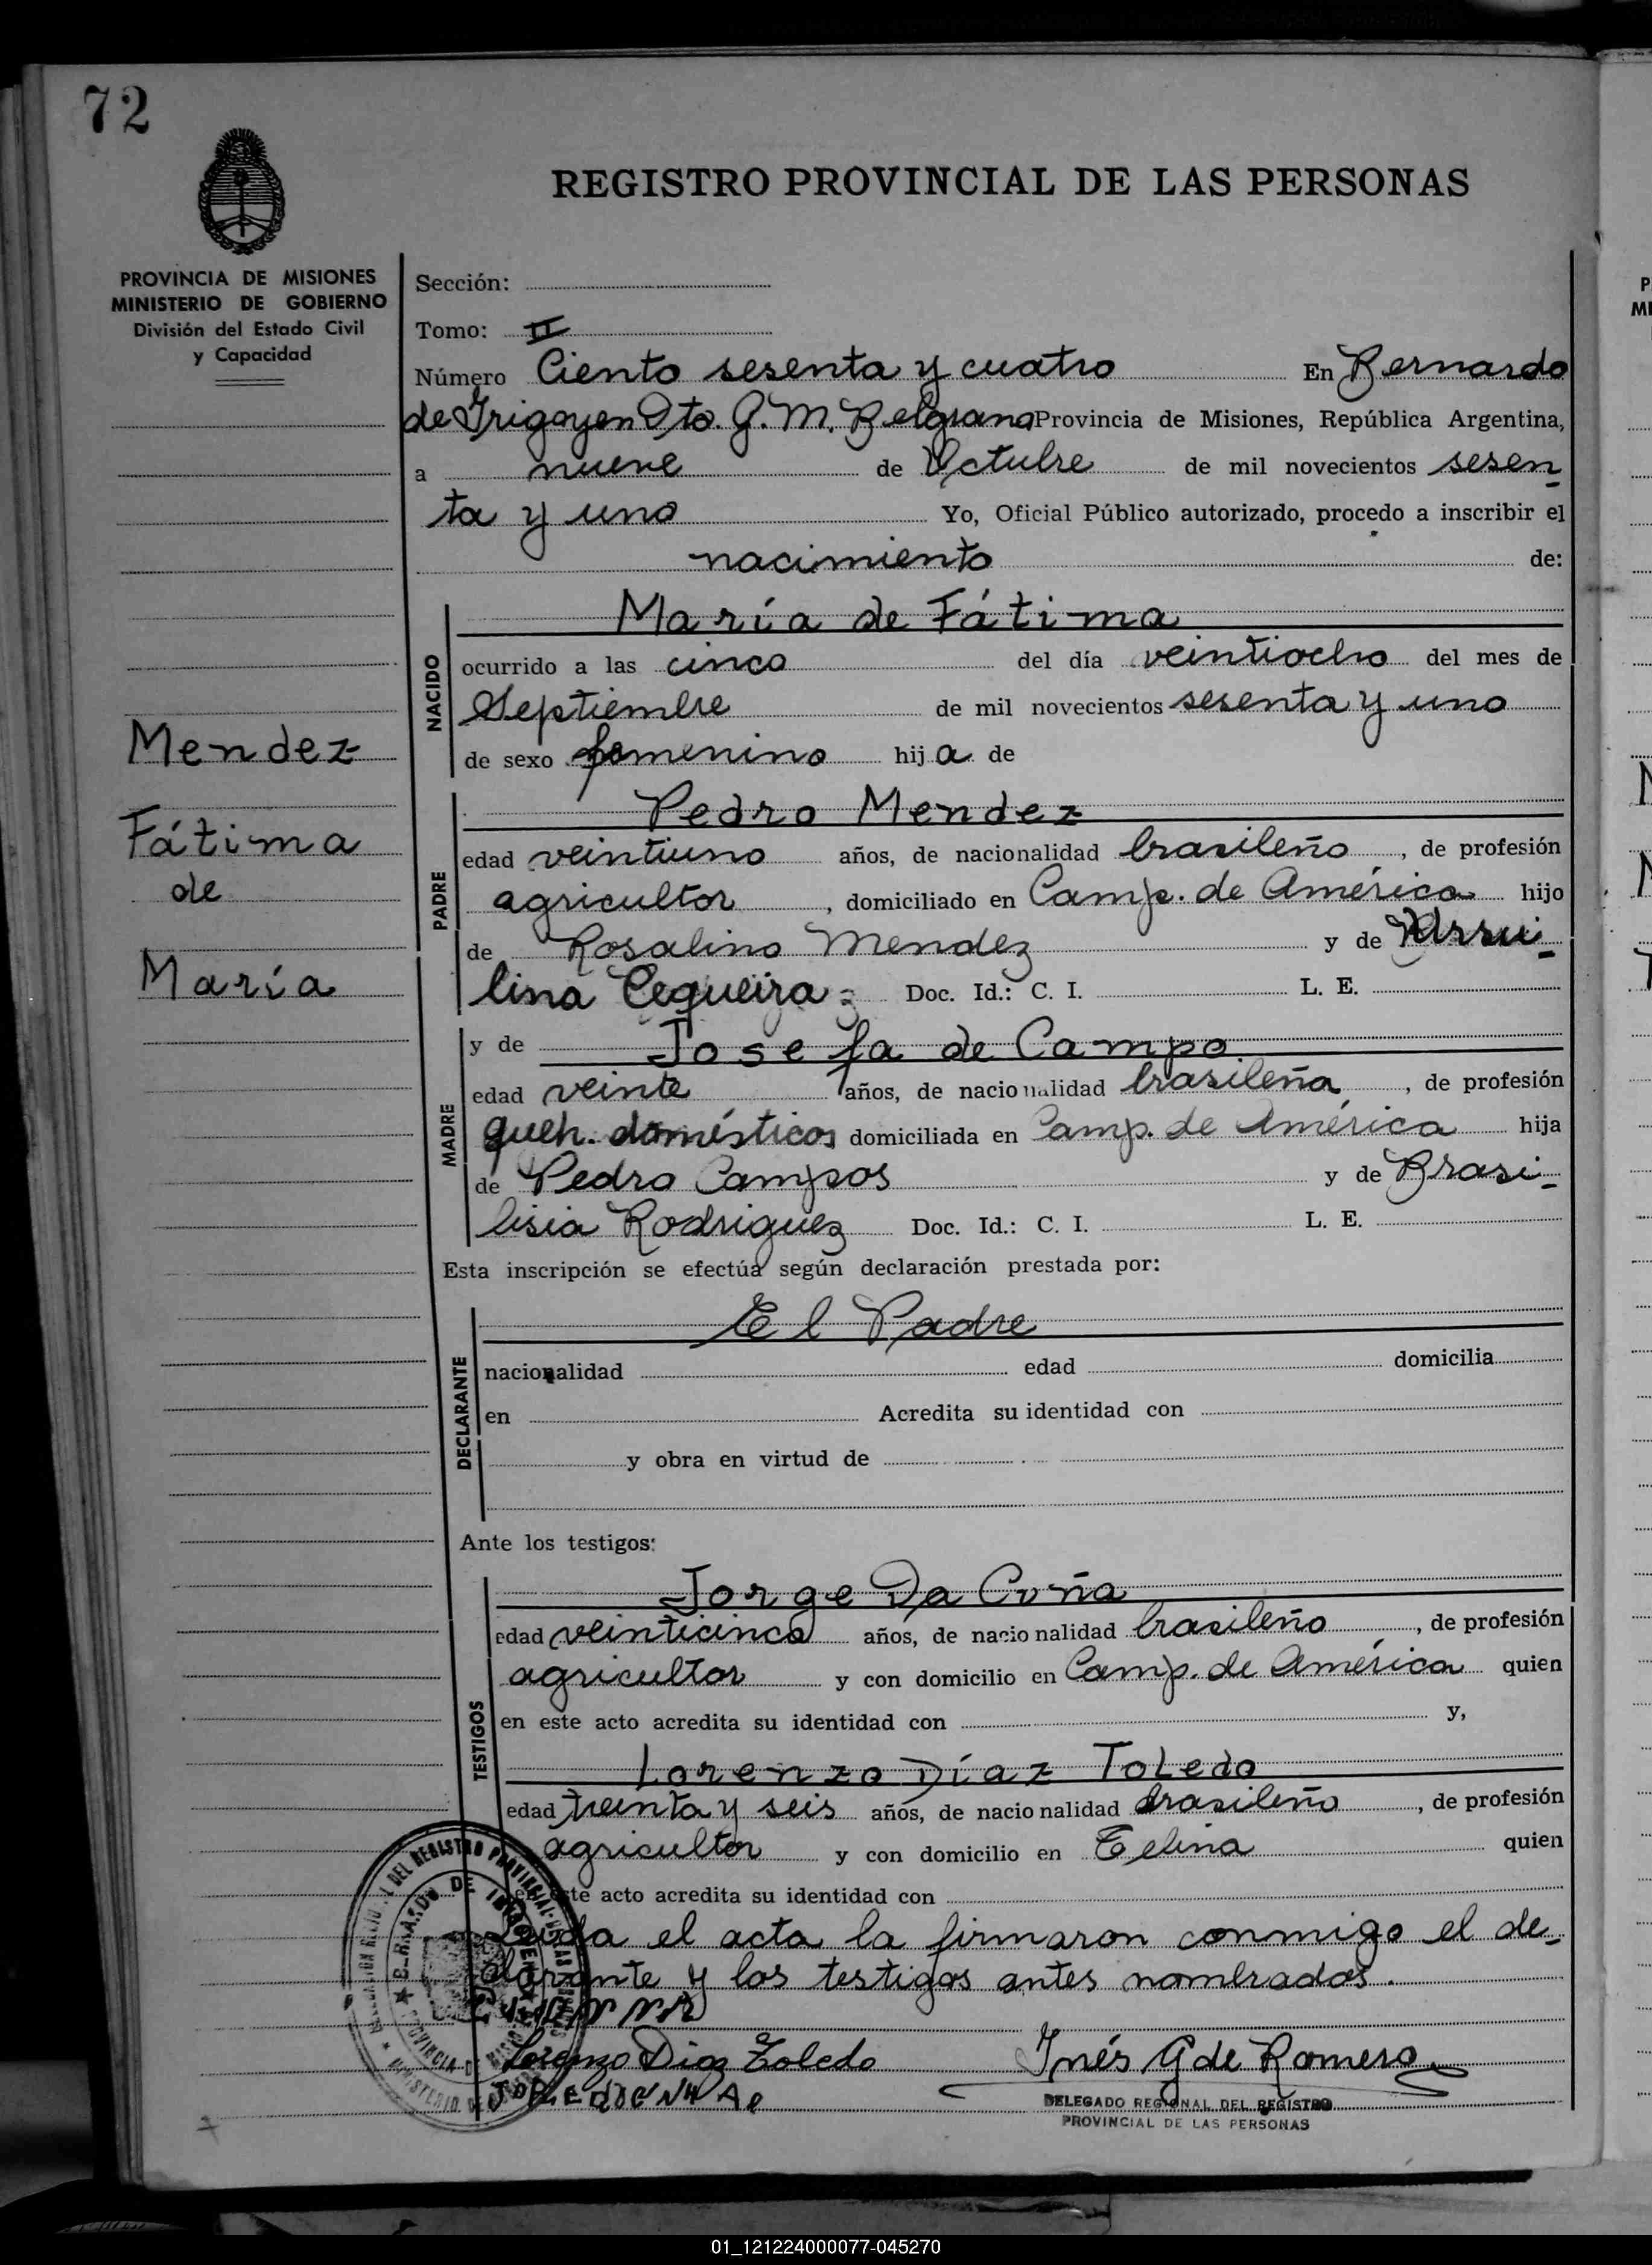 72
REGISTRO PROVINCIAL DE LAS PERSONAS
PROVINCIA DE MISIONES
MINISTERIO DE GOBIERNO
División del Estado Civil
y Capacidad
Sección:
Tomo: II
Número Ciento sesenta y cuatro En Bernardo
de Irigoyen Dto. G. M. Belgrano Provincia de Misiones, República Argentina,
a nueve de Octubre de mil novecientos sesen
ta y uno Yo, Oficial Público autorizado, procedo a inscribir el
nacimiento de:
NACIDO
María de Fátima
ocurrido a las cinco del día veintiocho del mes de
Septiembre de mil novecientos sesenta y uno
de sexo femenino hija de
Mendez
Fátima
de
María
PADRE
Pedro Mendez
edad veintiuno años, de nacionalidad brasileño, de profesión
agricultor, domiciliado en Camp. de América hijo
de Rosalino Mendez y de
lina Cequeira Doc. Id.: C. I. L. E.
MADRE
y de Josefa de Campo
edad veinte años, de nacionalidad brasileña, de profesión
queh. domésticos domiciliada en Camp. de América hija
de Pedro Campos y de Brasi-
lisia Rodriguez Doc. Id.: C. I. L. E.
Esta inscripción se efectúa según declaración prestada por:
DECLARANTE
El Padre
nacionalidad edad domicilia
en Acredita su identidad con
y obra en virtud de
Ante los testigos:
TESTIGOS
Jorge Da Cuña
edad veinticinco años, de nacionalidad brasileño, de profesión
agricultor y con domicilio en Camp. de América quien
en este acto acredita su identidad con y,
Lorenzo Díaz Toledo
edad treinta y seis años, de nacionalidad brasileño, de profesión
agricultor y con domicilio en quien
en este acto acredita su identidad con
Leida el acta la firmaron conmigo el de-
clarante y los testigos antes nombrados.
Lorenzo Diaz Toledo
Inés G de Romero
DELEGADO REGIONAL DEL REGISTRO
PROVINCIAL DE LAS PERSONAS
01_121224000077-045270